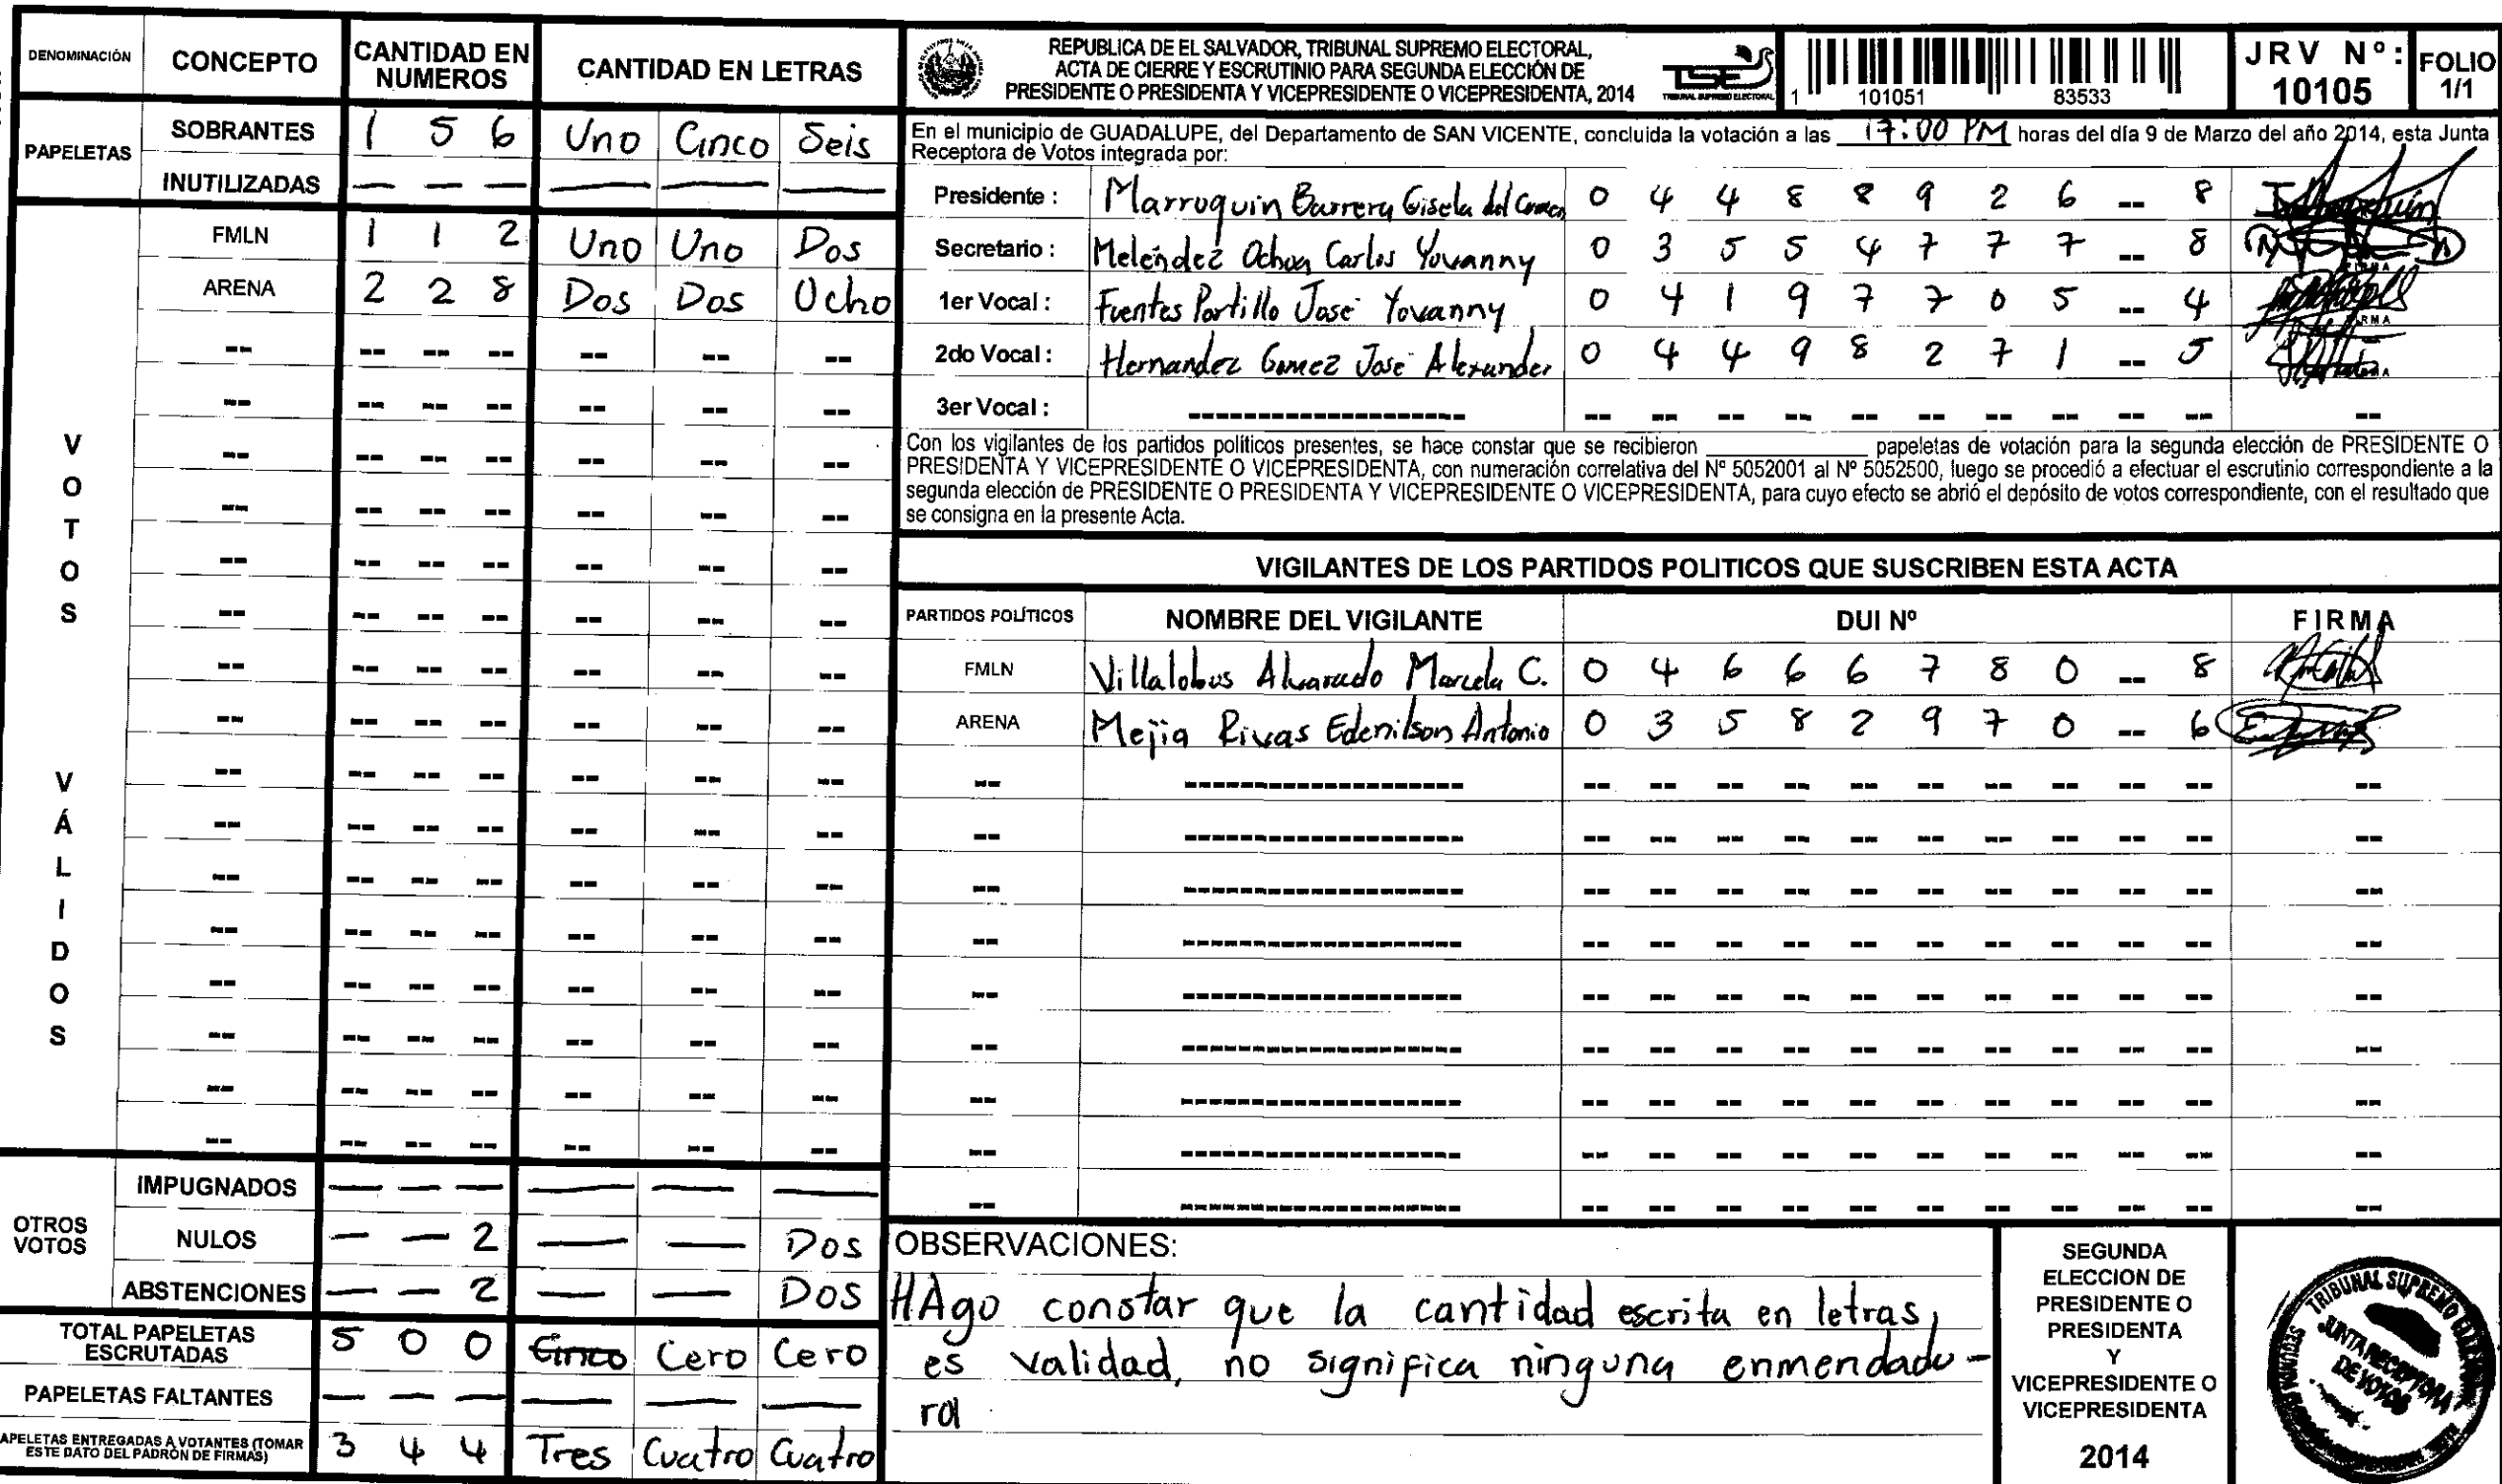 DENOMINACIÓN CONCEPTO CANTIDAD EN NUMEROS CANTIDAD EN LETRAS
PAPELETAS
SOBRANTES 1 5 6 Uno Cinco Seis
INUTILIZADAS — — — — — —
VOTOS VÁLIDOS
FMLN 1 1 2 Uno Uno Dos
ARENA 2 2 8 Dos Dos Ocho
OTROS VOTOS
IMPUGNADOS — — — — — —
NULOS — — 2 — — Dos
ABSTENCIONES — — 2 — — Dos
TOTAL PAPELETAS ESCRUTADAS 5 0 0 Cinco Cero Cero
PAPELETAS FALTANTES — — — — — —
APELETAS ENTREGADAS A VOTANTES (TOMAR ESTE DATO DEL PADRÓN DE FIRMAS) 3 4 4 Tres Cuatro Cuatro
REPUBLICA DE EL SALVADOR, TRIBUNAL SUPREMO ELECTORAL,
ACTA DE CIERRE Y ESCRUTINIO PARA SEGUNDA ELECCIÓN DE
PRESIDENTE O PRESIDENTA Y VICEPRESIDENTE O VICEPRESIDENTA, 2014
TSE
TRIBUNAL SUPREMO ELECTORAL
1 101051 83533
JRV Nº: 10105
FOLIO 1/1
En el municipio de GUADALUPE, del Departamento de SAN VICENTE, concluida la votación a las 17:00 PM horas del día 9 de Marzo del año 2014, esta Junta
Receptora de Votos integrada por:
Presidente : Marroquin Barrera Gisela del 0 4 4 8 8 9 2 6 -- 8
Secretario : Meléndez Ochoa Carlos Yovanny 0 3 5 5 4 7 7 7 -- 8
1er Vocal : Fuentes Portillo José Yovanny 0 4 1 9 7 7 0 5 -- 4
2do Vocal : Hernandez Gomez José Alexander 0 4 4 9 8 2 7 1 -- 5
3er Vocal : -- -- -- -- -- -- -- -- -- -- --
Con los vigilantes de los partidos políticos presentes, se hace constar que se recibieron ________ papeletas de votación para la segunda elección de PRESIDENTE O
PRESIDENTA Y VICEPRESIDENTE O VICEPRESIDENTA, con numeración correlativa del Nº 5052001 al Nº 5052500, luego se procedió a efectuar el escrutinio correspondiente a la
segunda elección de PRESIDENTE O PRESIDENTA Y VICEPRESIDENTE O VICEPRESIDENTA, para cuyo efecto se abrió el depósito de votos correspondiente, con el resultado que
se consigna en la presente Acta.
VIGILANTES DE LOS PARTIDOS POLITICOS QUE SUSCRIBEN ESTA ACTA
PARTIDOS POLÍTICOS NOMBRE DEL VIGILANTE DUI Nº FIRMA
FMLN Villalobos Alvarado Marcela C. 0 4 6 6 6 7 8 0 -- 8
ARENA Mejia Rivas Edenilson Antonio 0 3 5 8 2 9 7 0 -- 6
OBSERVACIONES:
HAgo constar que la cantidad escrita en letras,
es validad, no significa ninguna enmendadu-
ra
SEGUNDA
ELECCION DE
PRESIDENTE O
PRESIDENTA
Y
VICEPRESIDENTE O
VICEPRESIDENTA
2014
TRIBUNAL SUPREMO
JUNTA RECEPTORA
DE VOTOS